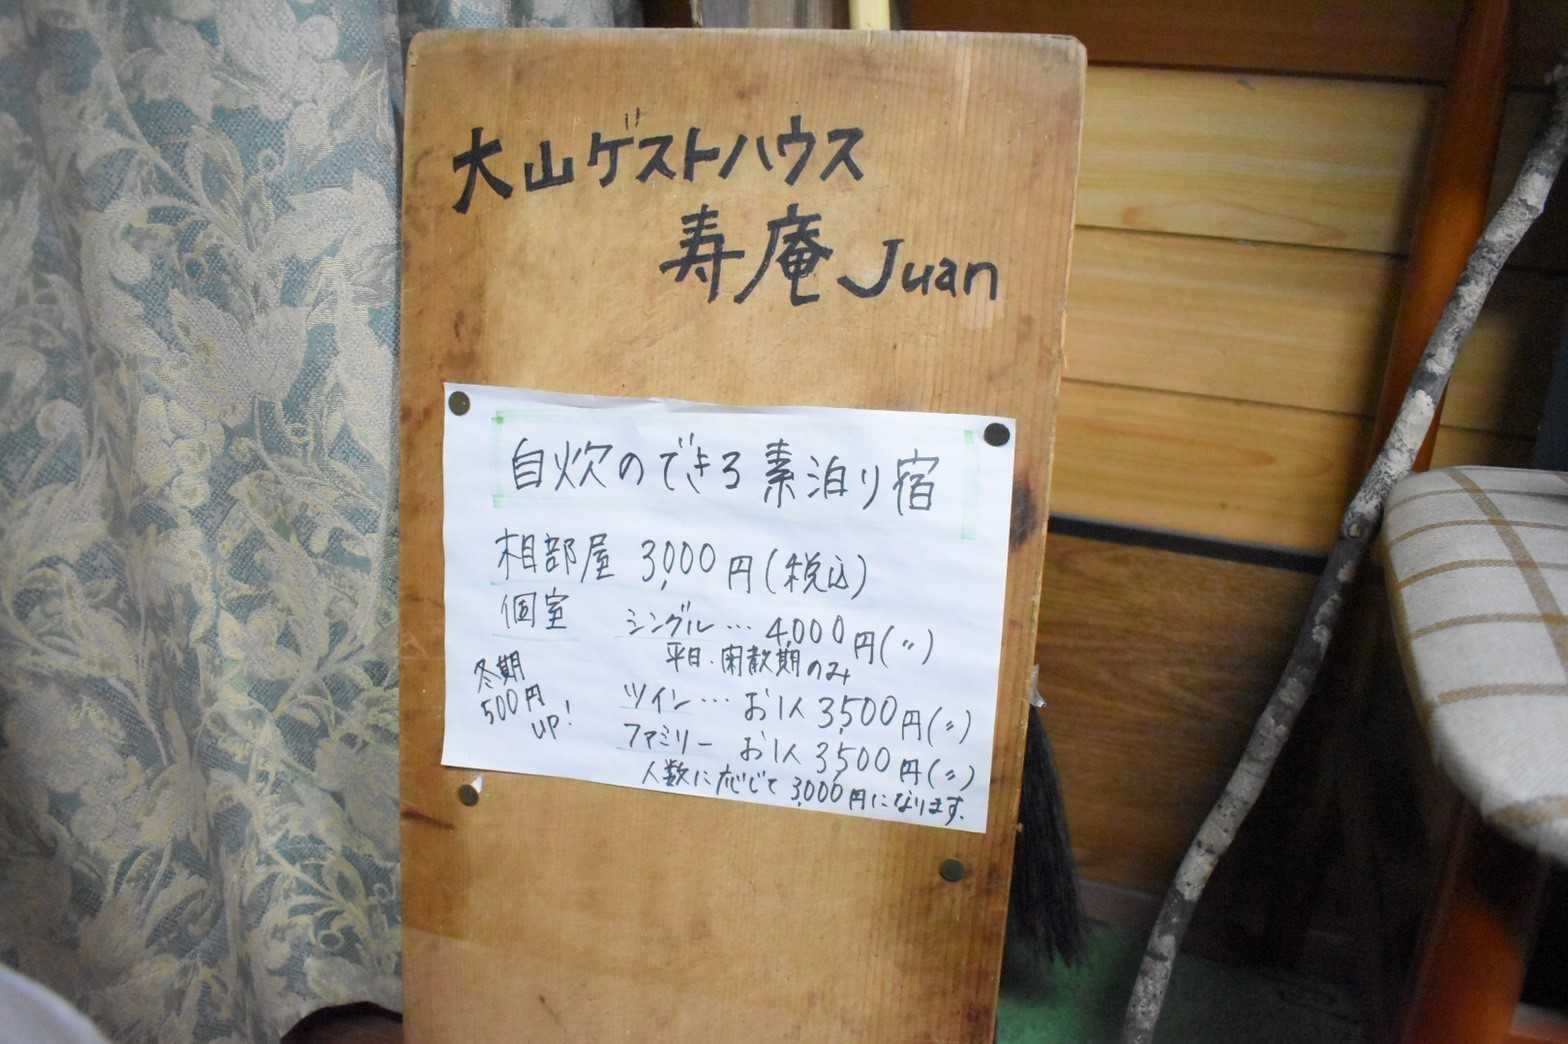 大山ゲストハウス
寿庵 Juan
自炊のできる素泊り宿
相部屋 3,000円(税込)
個室 シングル… 4,000円(〃)
平日、閑散期のみ
冬期
500円
UP!
ツイン… お1人 3,500円(〃)
ファミリー お1人 3,500円(〃)
人数に応じて 3,000円になります。